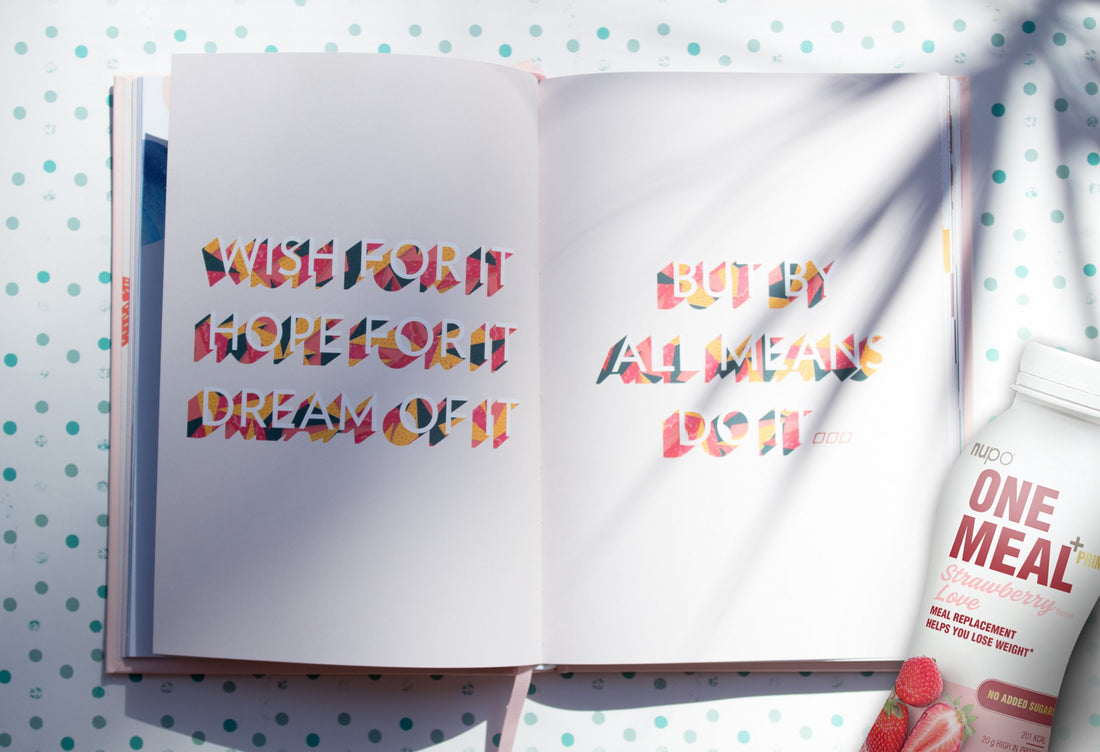 WISH FOR IT
HOPE FOR IT
DREAM OF IT
BUT BY
ALL MEANS
DO IT ...
nupo®
ONE
MEAL
+PRIM
Strawberry
Love
MEAL REPLACEMENT
HELPS YOU LOSE WEIGHT*
NO ADDED SUGARS
201 KCAL
20g HIGH IN PROTEIN